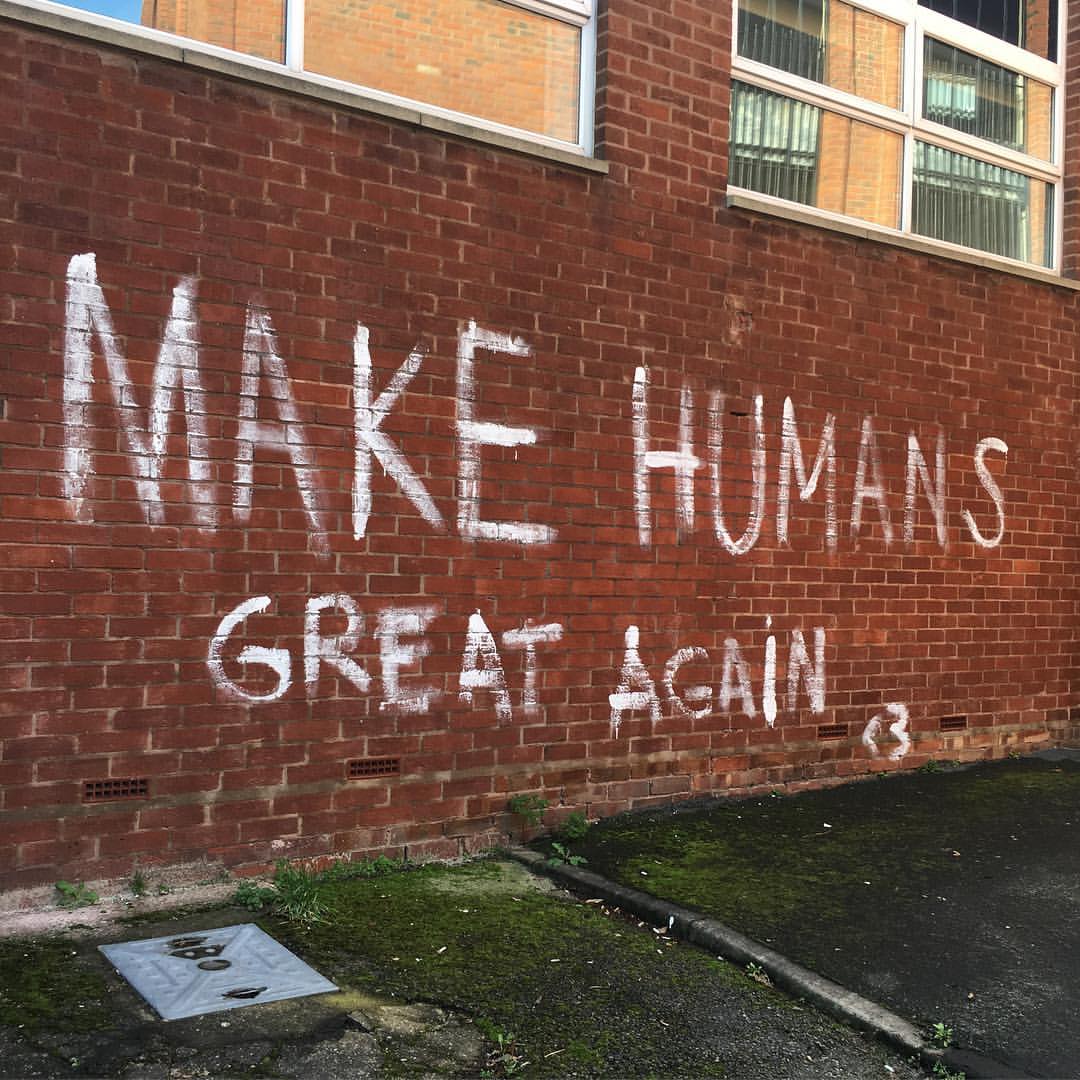 MAKE HUMANS
GREAT AGAIN
<3